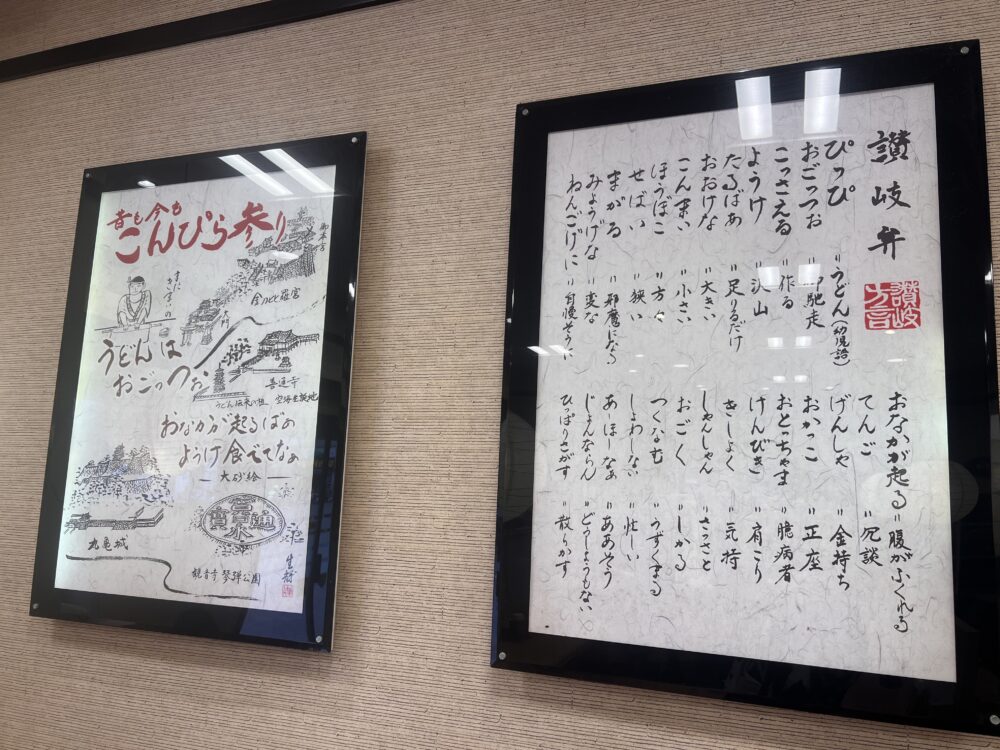 昔も今も
こんぴら参り
御本宮
金刀比羅宮
大門
うどんは
おごっつぉ
善通寺
うどん伝来の祖 空海生誕地
おなかが起るばぁ
ようけ食べてなぁ
— 大砂絵 —
丸亀城
寛永通宝
観音寺 琴弾公園
讃岐弁
讃岐方言
ぴっぴ 〃うどん(幼児語)
おごっつぉ 〃御馳走
こっさえる 〃作る
ようけ 〃沢山
たるばあ 〃足りるだけ
おおけな 〃大きい
こんまい 〃小さい
ほうぼこ 〃方々
せばい 〃狭い
まがる 〃邪魔になる
みょうげな 〃変な
わんごげに 〃自慢そうに
おなかが起る〃腹がふくれる
てんご 〃冗談
げんしゃ 〃金持ち
おかっこ 〃正座
おとっちゃま 〃臆病者
けんびき 〃肩こり
きしょく 〃気持
しゃんしゃん 〃さっさと
おごく 〃しかる
つくなむ 〃うずくまる
しょわしない 〃忙しい
あ・ほ・なぁ 〃ああそう
じょんならん 〃どうしようもない
ひっぱりさがす 〃散らかす